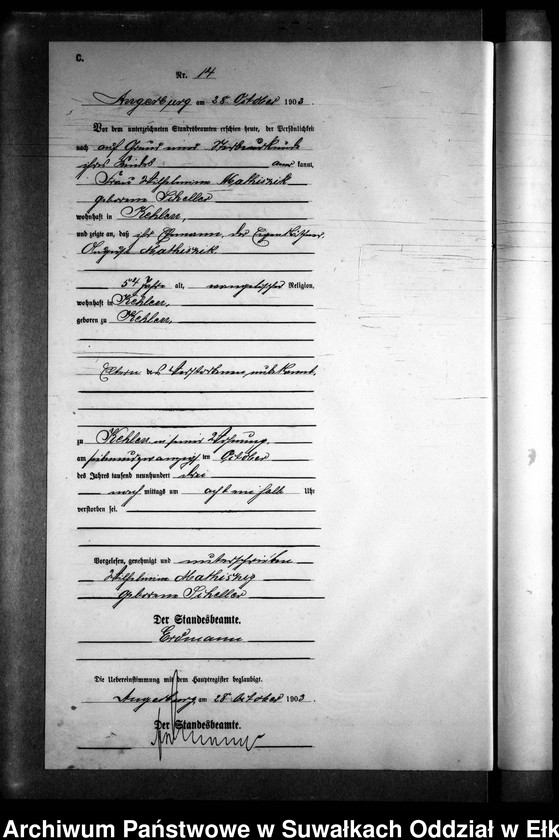 C.
Nr. 14
Angerburg am 28 October 1903.
Vor dem unterzeichneten Standesbeamten erschien heute, der Persönlichkeit
nach auf Grund
kannt,
Frau Wilhelmine Mathiszik
geborene Scheller
wohnhaft in Kehlen,
und zeigte an, daß ihr Ehemann, der Eigenkäthner
August Mathiszik
54 Jahre alt, evangelischer Religion,
wohnhaft in Kehlen,
geboren zu Kehlen,
Eltern des Verstorbenen unbekannt,
zu Kehlen in seiner Wohnung,
am siebenundzwanzigsten October
des Jahres tausend neunhundert drei
nach mittags um acht ein halb Uhr
verstorben sei.
Vorgelesen, genehmigt und unterschrieben
Wilhelmine Mathiszig
geborene Scheller
Der Standesbeamte.
Erdmann
Die Uebereinstimmung mit dem Hauptregister beglaubigt.
Angerburg am 28 October 1903.
Der Standesbeamte.
Erdmann
Archiwum Państwowe w Suwałkach Oddział w Ełk